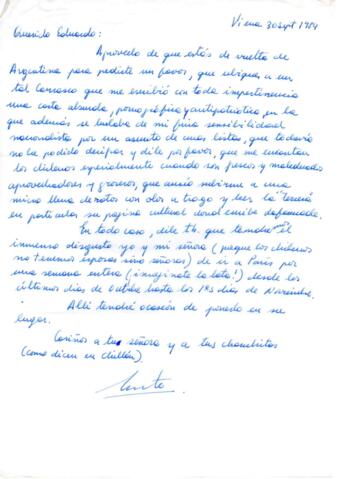 Viena 30 sept 1984
Querido Eduardo:
Aprovecho de que estás de vuelta de
Argentina para pedirte un favor, que ubiques a un
tal Carrasco que me escribió con toda impertinencia
una carta absurda, pornográfica y antipatriótica, en la
que además se burlaba de mi fina sensibilidad
nacionalista por un asunto de unas listas, que todavía
no he podido descifrar y dile por favor, que me encantan
los chilenos especialmente cuando son frescos y maleducados
aprovechadores y groseros, que ansío subirme a una
micro llena de rotos con olor a trago y leer la "tercera"
en particular su página cultural donde escribe
En todo caso, dile tb. que tendré el
inmenso disgusto yo y mi señora (porque los chilenos
no tenemos esposas sino señoras) de ir a París por
una semana entera (imagínate la lata!) desde los
últimos días de Octubre hasta los 1ros días de Noviembre.
Allí tendré ocasión de ponerlo en su
lugar.
Cariños a tu señora y a tus
(como dicen en Chillán)